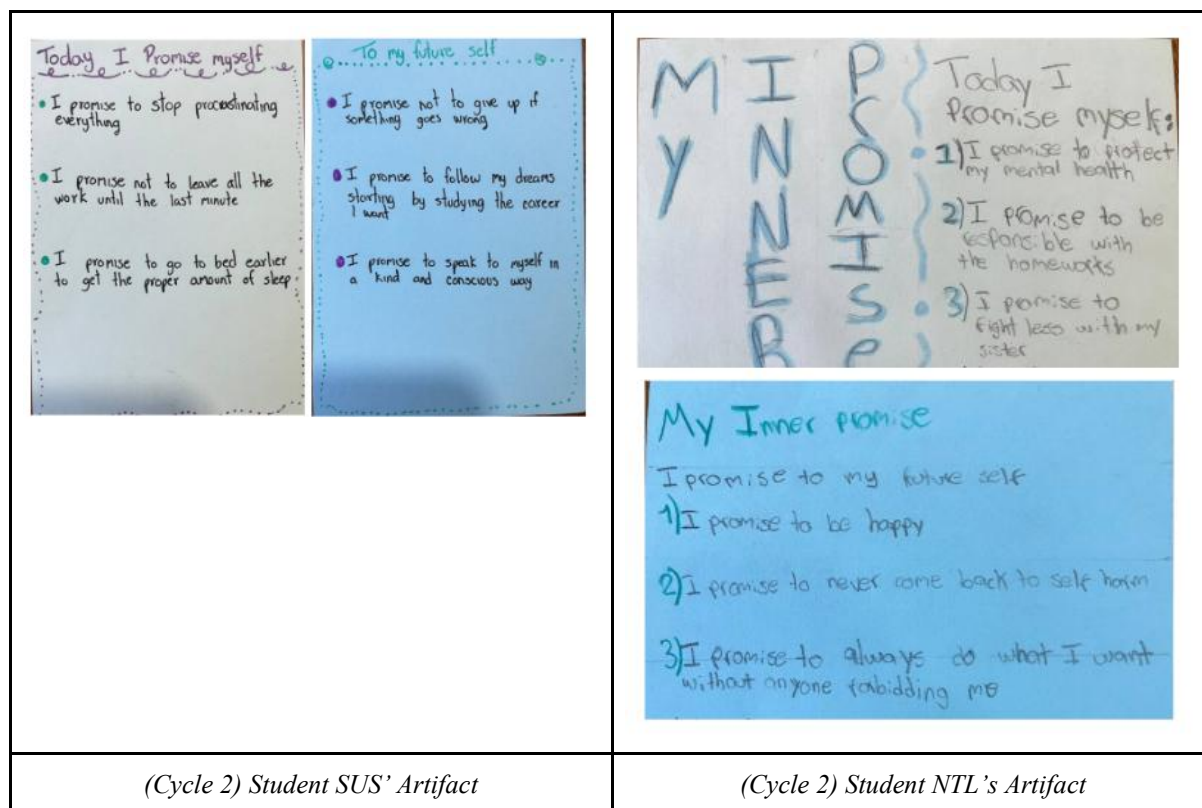 Today I Promise myself
• I promise to stop procrastinating
everything
• I promise not to leave all the
work until the last minute
• I promise to go to bed earlier
to get the proper amount of sleep.
To my future self
• I promise not to give up if
something goes wrong
• I promise to follow my dreams
starting by studying the career
I want
• I promise to speak to myself in
a kind and conscious way
My
INNER
PromISe
Today I
Promise myself:
1) I promise to protect
my mental health
2) I promise to be
responsible with
the homeworks
3) I promise to
fight less with my
sister
My Inner promise
I promise to my future self
1) I promise to be happy
2) I promise to never come back to self harm
3) I promise to always do what I want
without anyone forbidding me
(Cycle 2) Student SUS’ Artifact
(Cycle 2) Student NTL’s Artifact